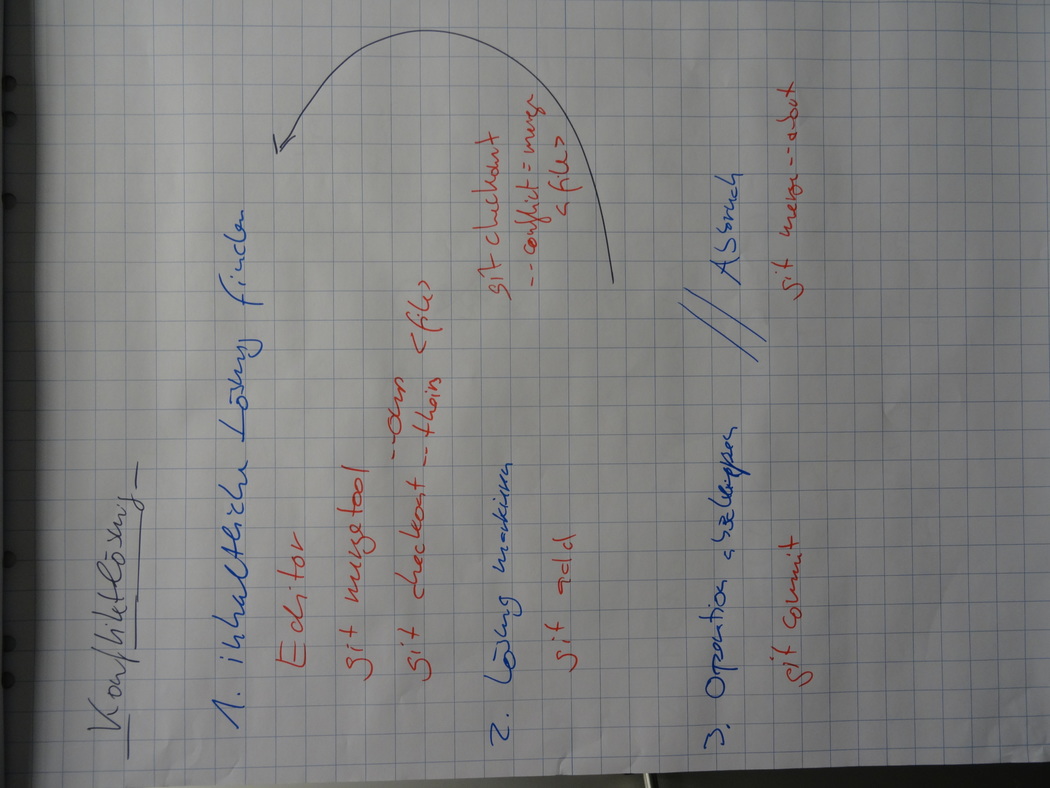 Konfliktlösung
1. inhaltliche Lösung finden
Editor
git mergetool
git checkout --ours --theirs <file>
2. Lösung markieren
git add
git checkout
--conflict=merge
<file>
3. Operation
git commit
// Abbruch
git merge --abort